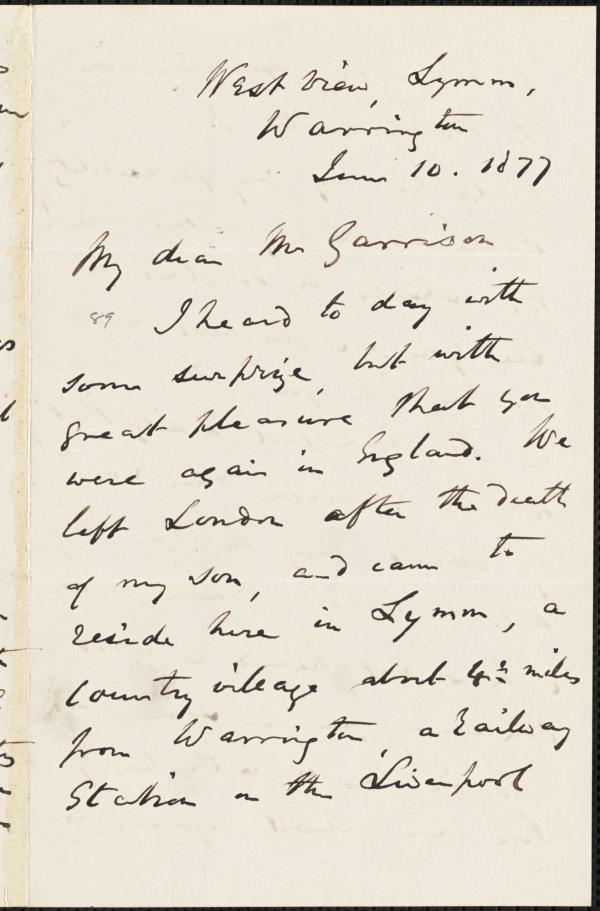 West View, Lymm,
Warrington
June 10. 1877
My dear Mr Garrison
89 I heard to day with
some surprize, but with
great pleasure that you
were again in England. We
left London after the death
of my son, and came to
reside here in Lymm, a
country village about miles
from Warrington, a Railway
Station on the Liverpool